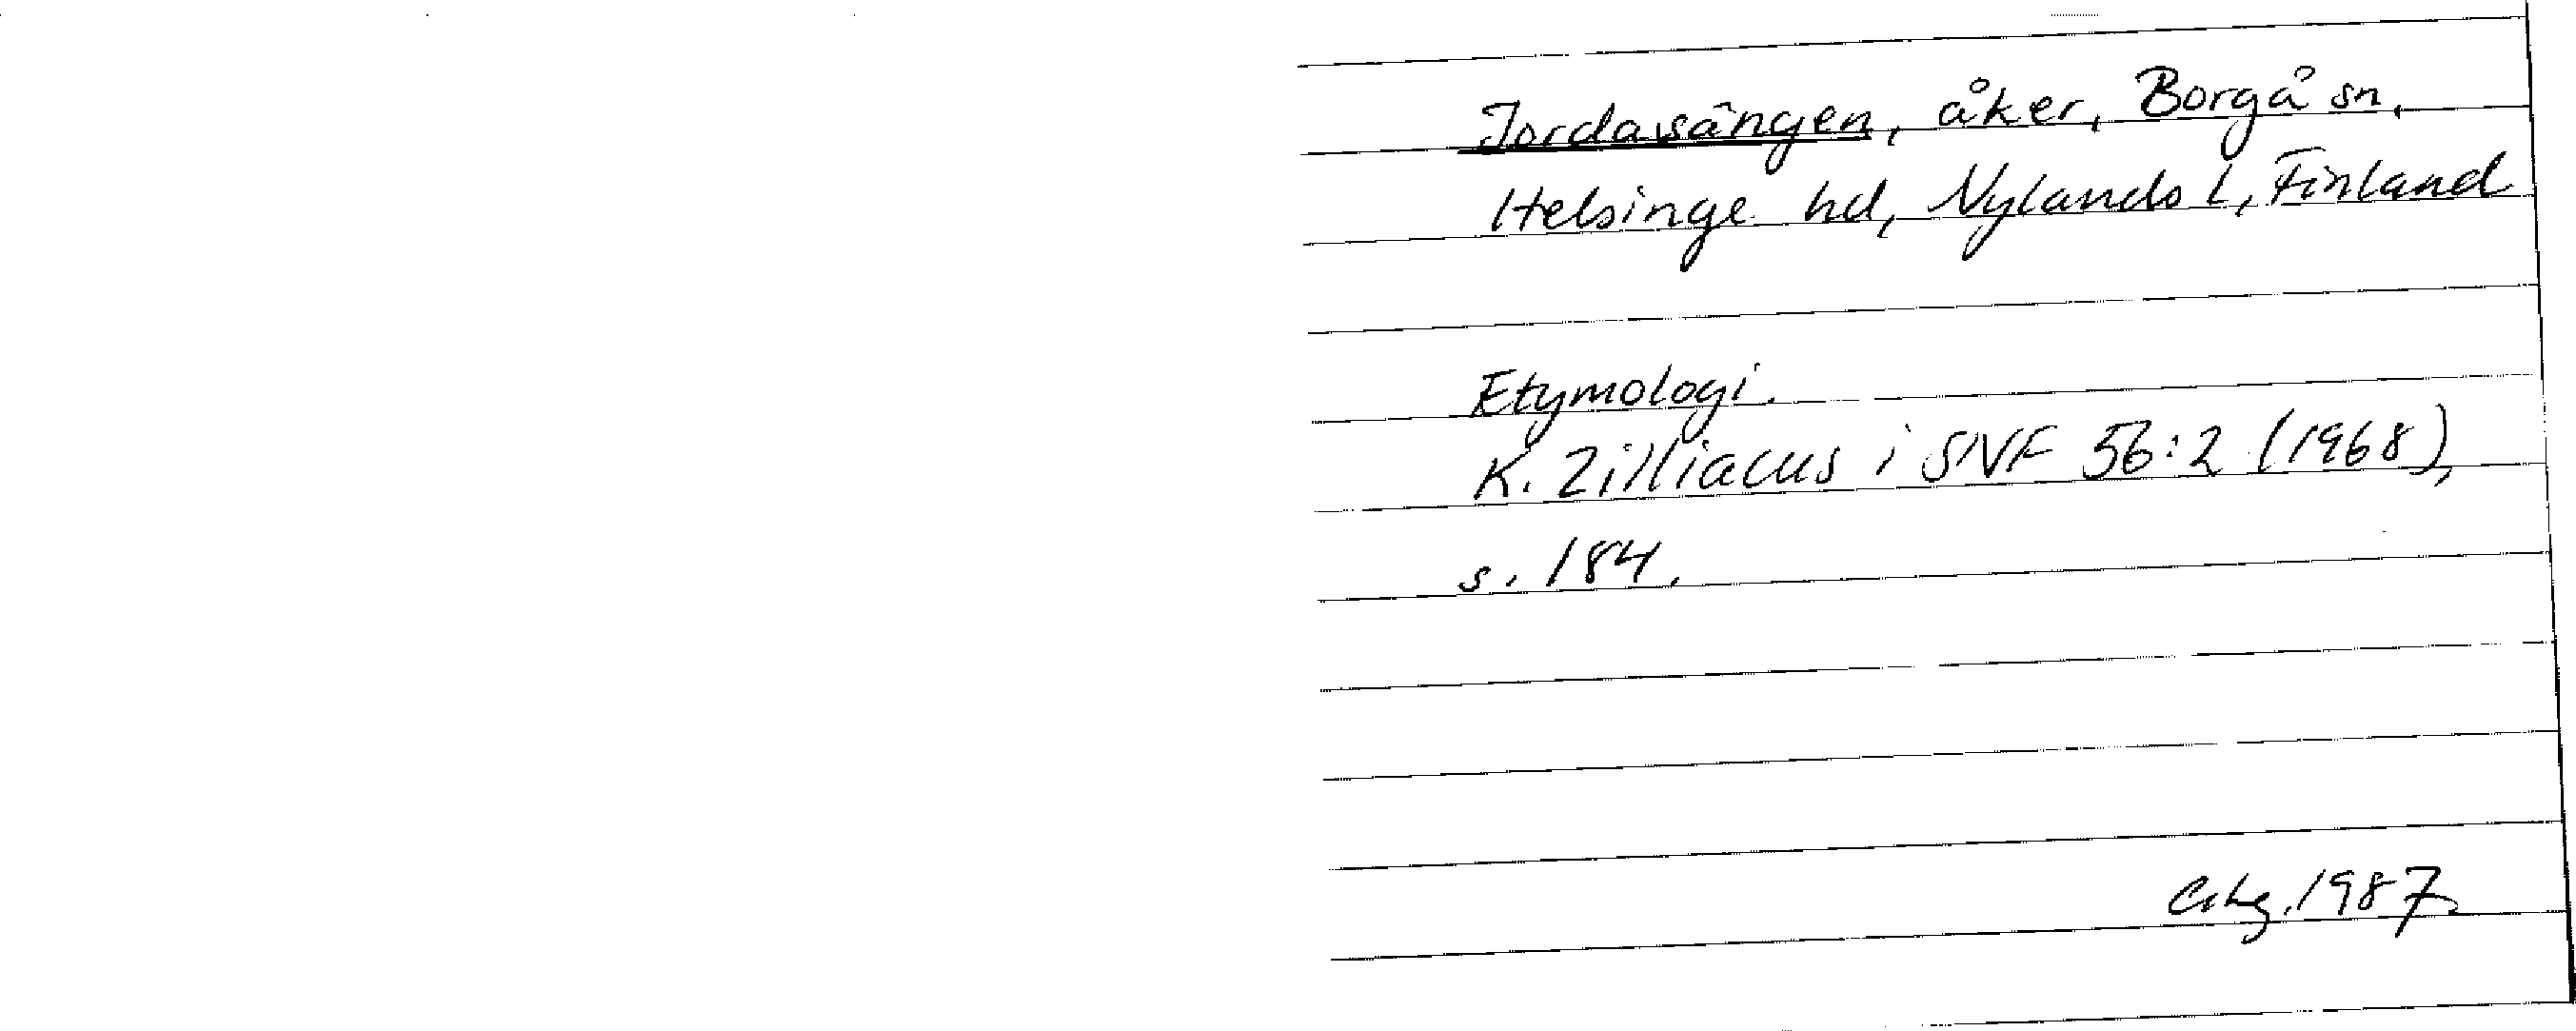 Jordasängen, åker, Borgå sn,
Helsinge hd, Nylands l, Finland
Etymologi.
K. Zilliacus i SNF 56:2 (1968),
s. 184.
1987